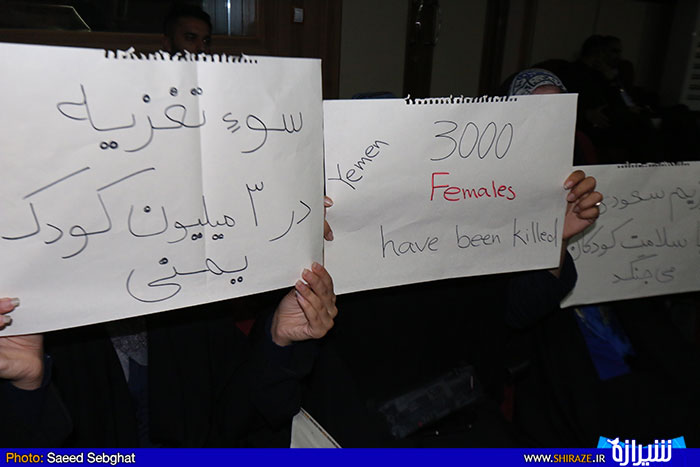 سوءِ تغزیه
در ۳ میلیون کودک
یمنی
Yemen
3000
Females
have been killed
سلامت کودکان
می‌جنگد
Photo: Saeed Sebghat
WWW.SHIRAZE.IR
شیرازه